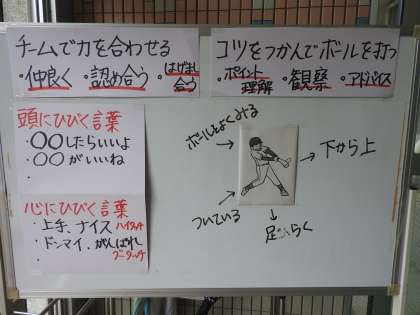 チームで力を合わせる
・仲良く ・認め合う ・はげまし合う
コツをつかんでボールを打つ
・ポイント理解 ・観察 ・アドバイス
頭にひびく言葉
・〇〇したらいいよ
・〇〇がいいね
・
心にひびく言葉
・上手、ナイス ハイタッチ
・ドンマイ、がんばれ グータッチ
・
ボールをよくみる
下から上
ついている
足ひらく